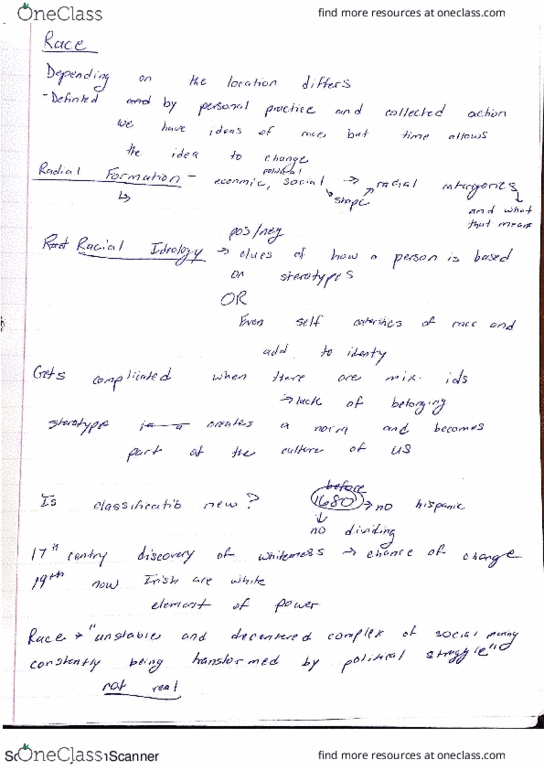 OneClass
find more resources at oneclass.com
Race
Depending on the location differs
- Definted and by personal practice and collected action
we have ideas of race but time allows
the idea to change
political
Radial Formation - econmic, social → radial catergories
↳ shape
and what
that means
pos/neg
Racial Ideology → clues of how a person is based
on sterotypes
OR
Even self of race and
add to identy
Gets complicated when there are mix ids
→ lack of belonging
sterotype creates a norm and becomes
part of the culture of US
before
Is new? 1680 → no hispanic
↓
no dividing
17th centry discovery of whiteness → chance of change
19th now Irish are white
element of power
Race → "unstable and decentered complex of social
constently being transformed by political struggle"
not real
OneClass Scanner
find more resources at oneclass.com